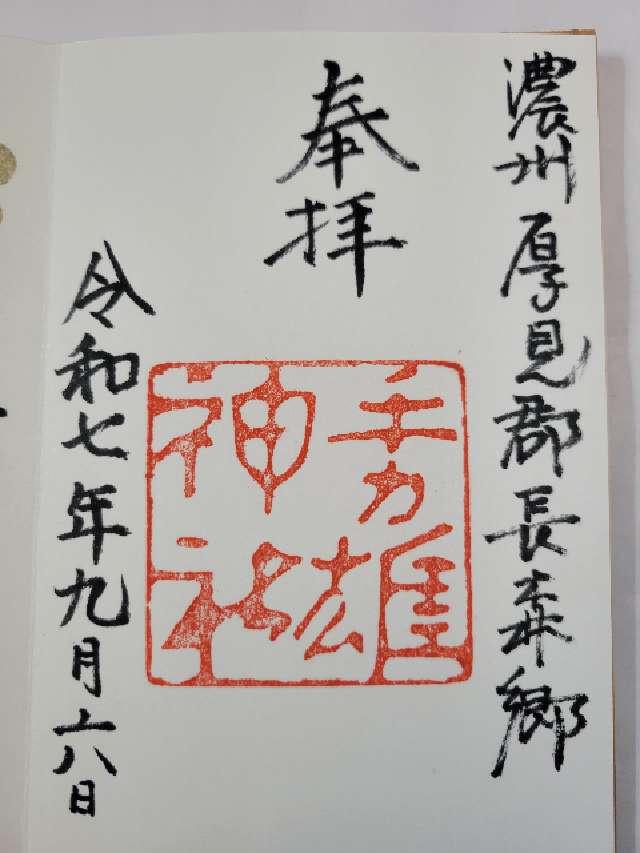 濃州厚見郡長森郷
奉拝
手力雄
神社
令和七年九月十八日